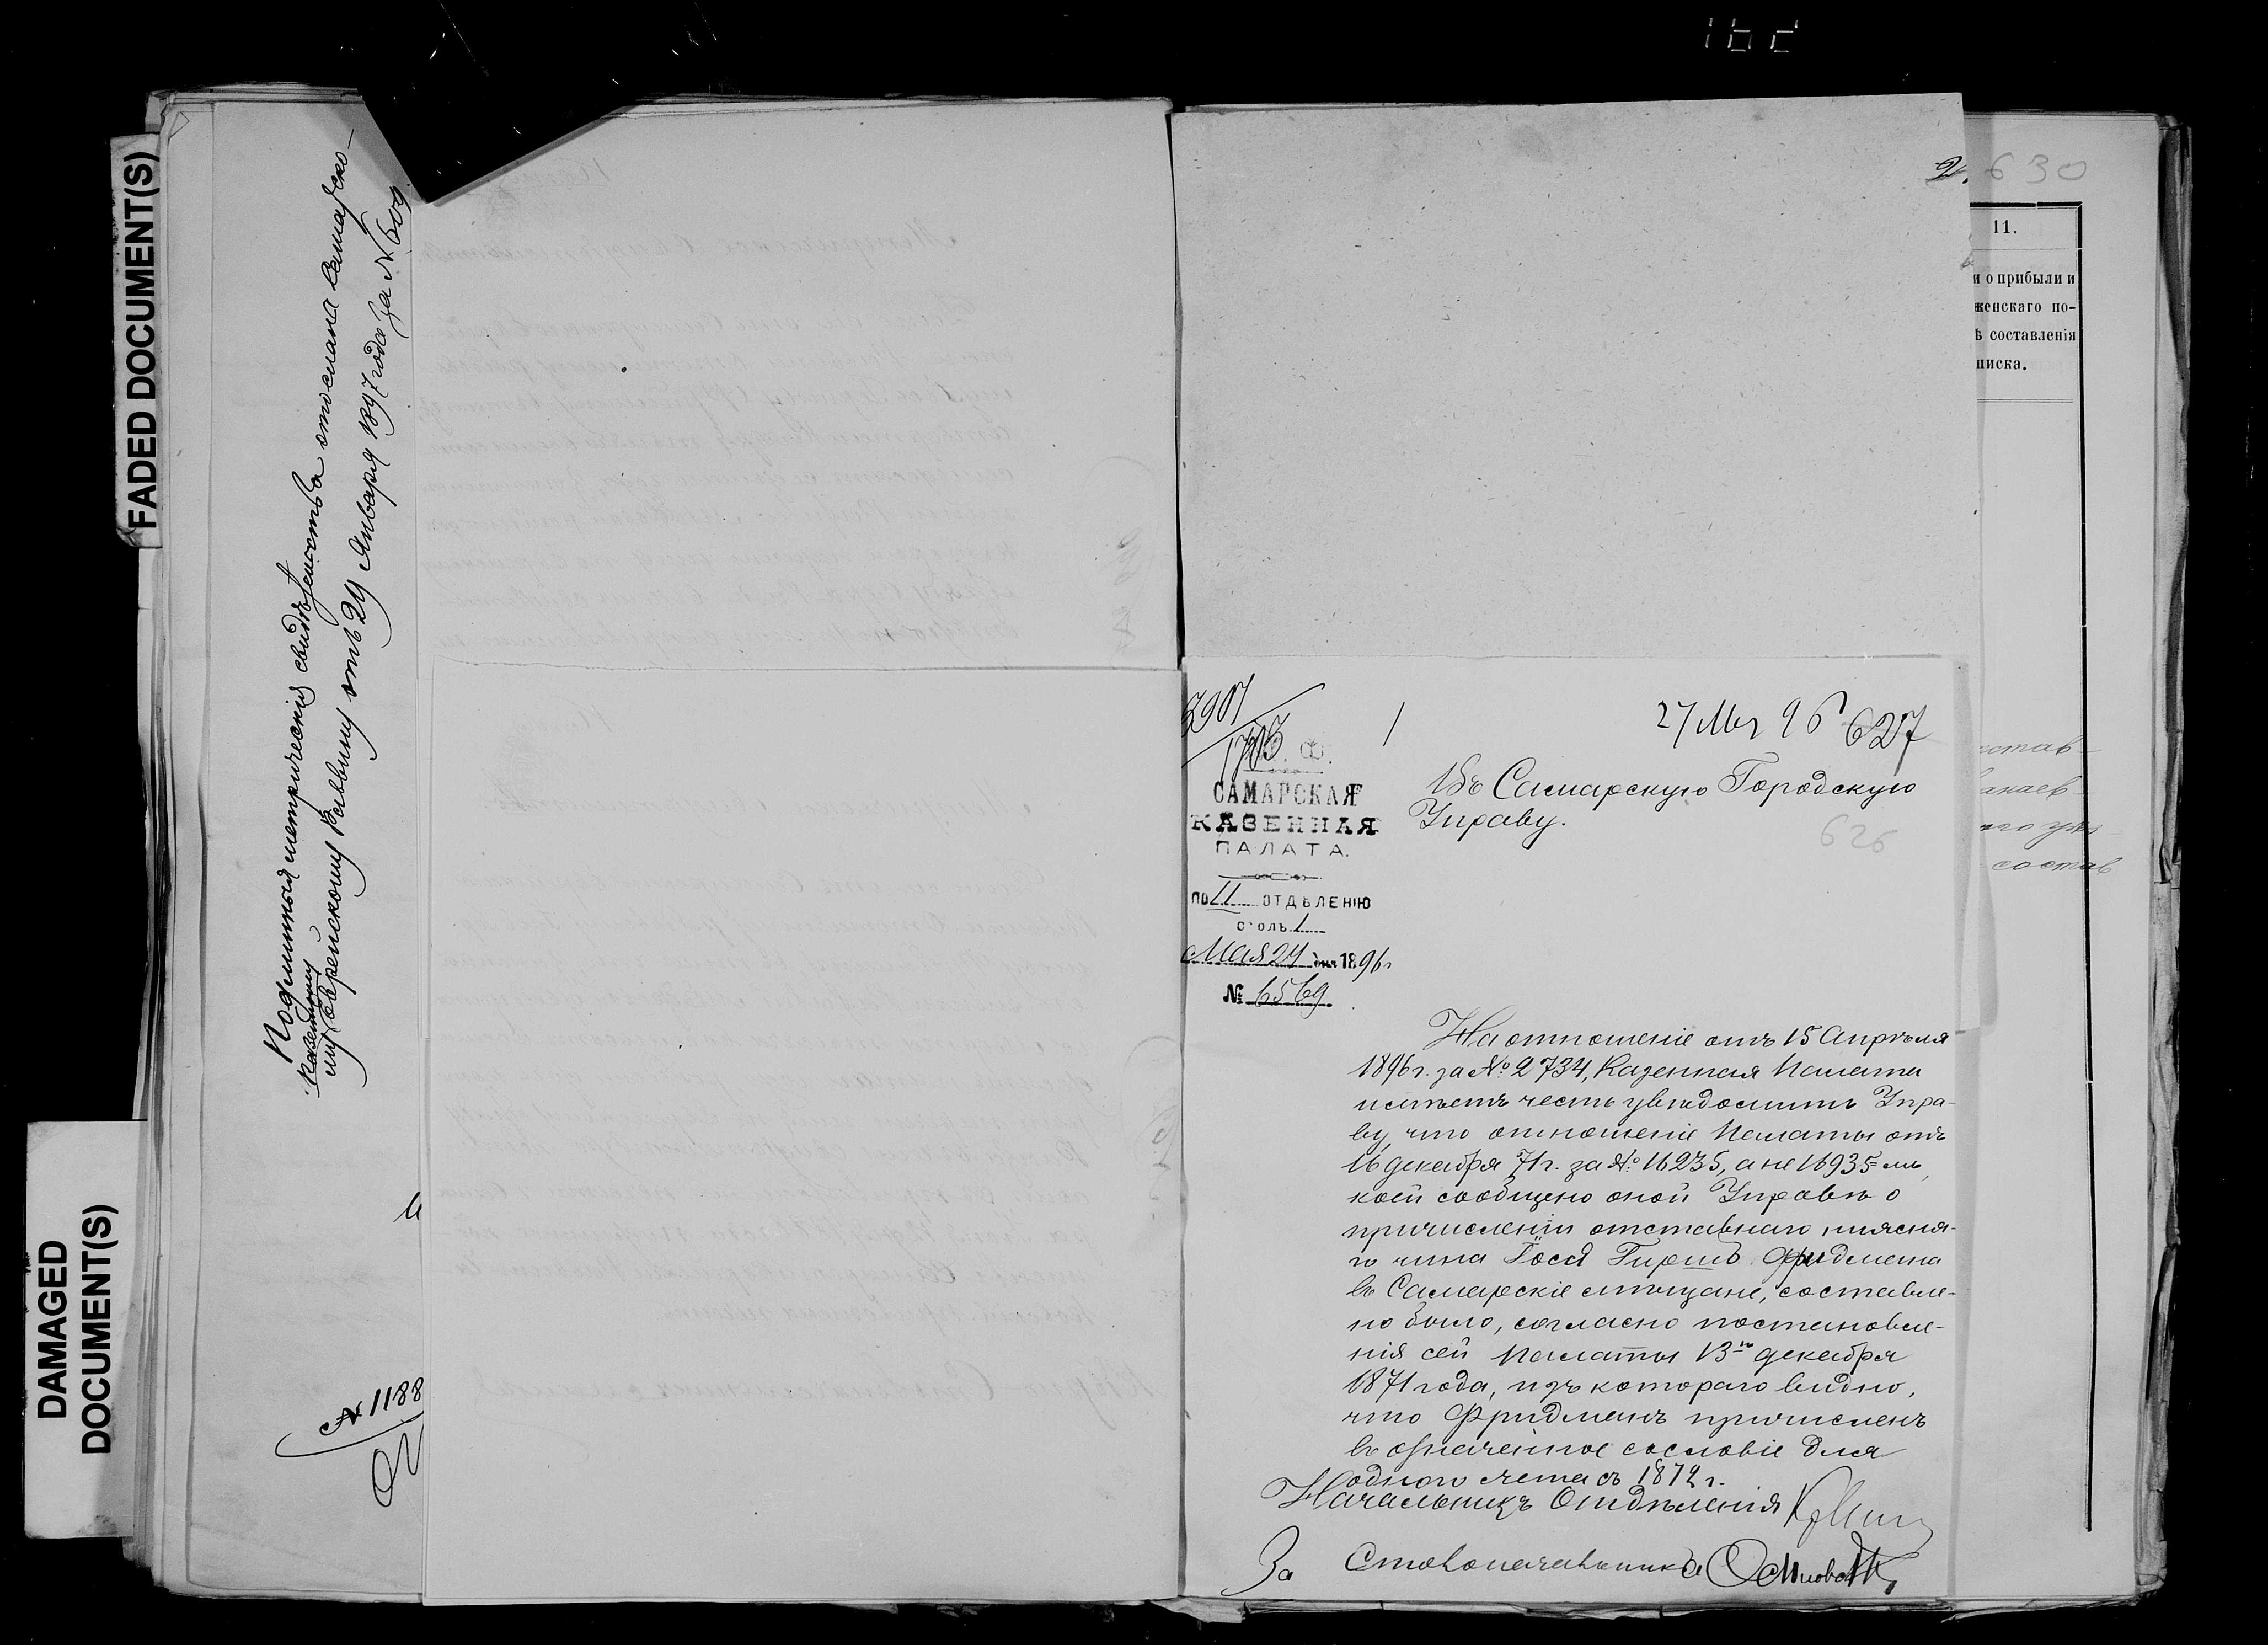 FADED DOCUMENT(S)
DAMAGED
DOCUMENT(S)
Подлинныя метрическія свидѣтельства отосланы Самарско-
му Казенному Еврейскому Раввину отъ 29 Января 1897 года за № 609
№ 1188
630
11.
и о прибыли и
женскаго по-
ѣ составленія
писка.
состав
27 Мая 96
627
626
САМАРСКАЯ
КАЗЕННАЯ
ПАЛАТА.
ПО II ОТДѢЛЕНІЮ
столъ 1
Мая 24 дня 1896 г.
№ 6569
Въ Самарскую Городскую
Управу.
На отношеніе отъ 15 Апрѣля
1896 г. за № 2734, Казенная Палата
имѣетъ честь увѣдомить Упра-
ву, что отношеніе Палаты отъ
16 декабря 71 г. за № 16235, а не 16935-мъ,
коей сообщено оной Управѣ о
причисленіи отставнаго нижня-
го чина Іося Гиршъ Фридмана
въ Самарскіе мѣщане, составле-
но было, согласно постановле-
нія сей Палаты 13го декабря
1871 года, изъ котораго видно,
что Фридманъ причисленъ
въ означенное сословіе для
одного счета съ 1872 г.
Начальникъ Отдѣленія
За Столоначальника